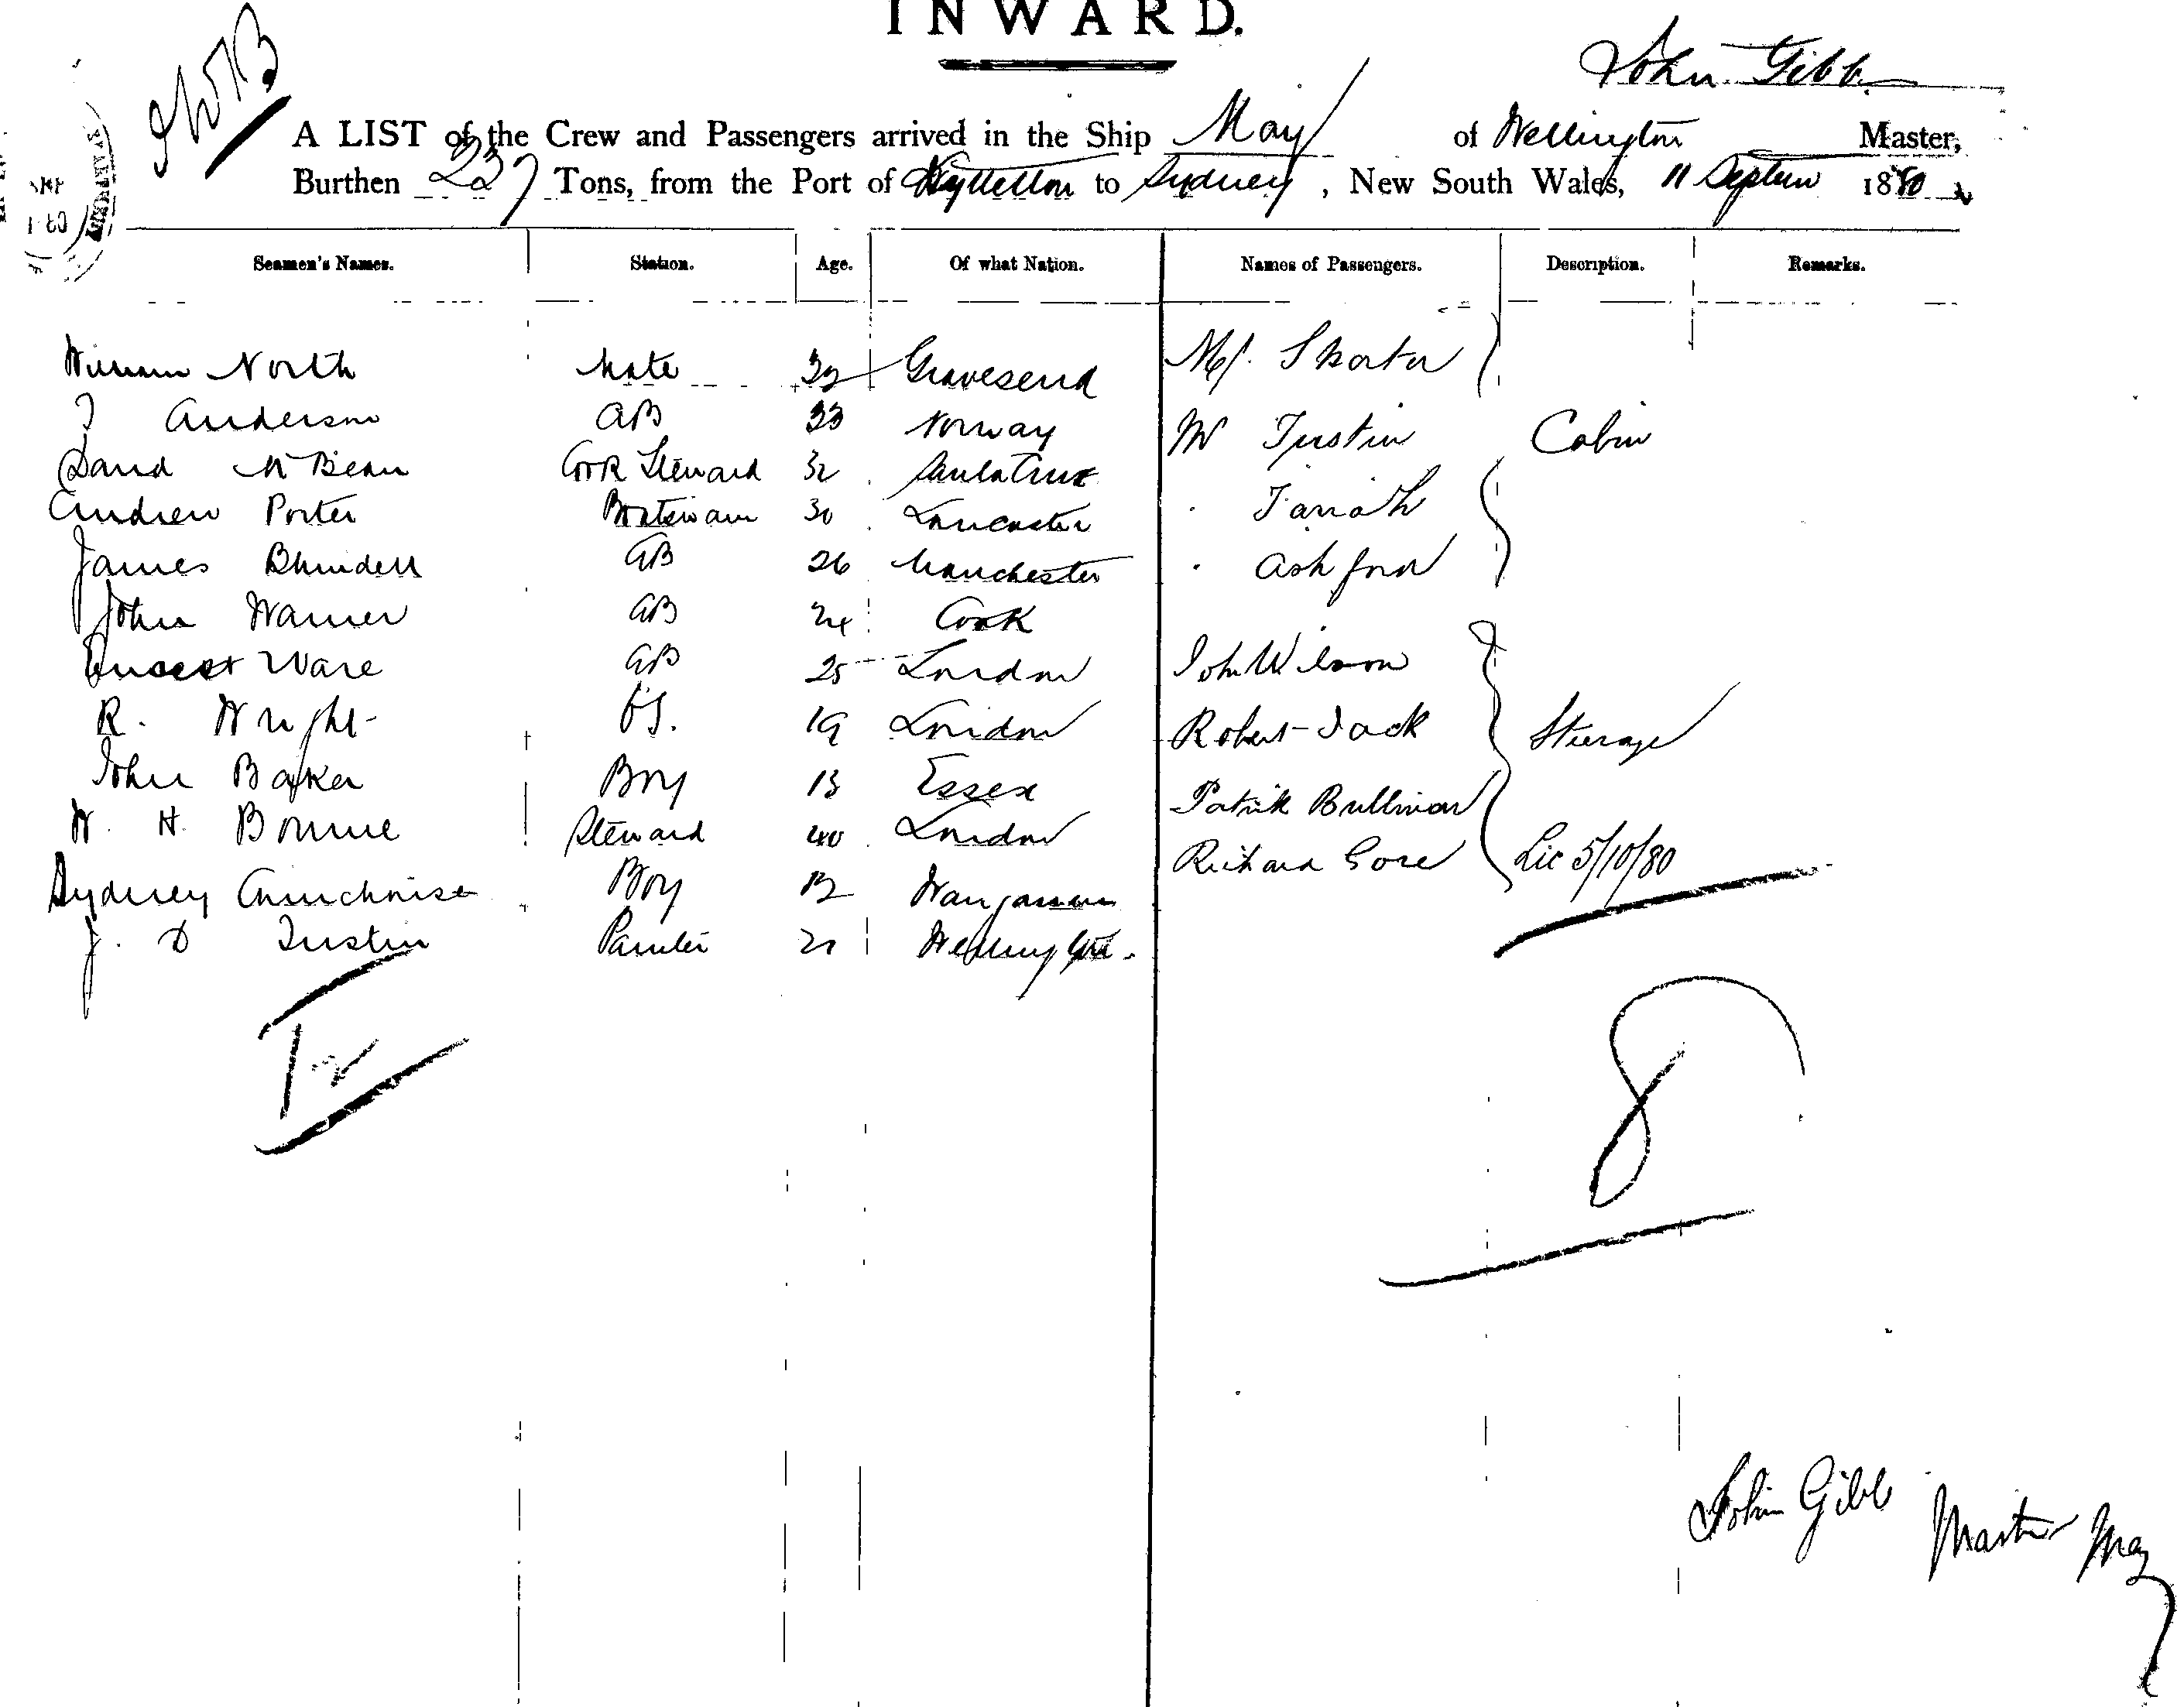 INWARD.
John Gibb
A LIST of the Crew and Passengers arrived in the Ship May of Wellington Master,
Burthen 237 Tons, from the Port of Lyttelton to Sydney, New South Wales, 11 Septem 1880
Seamen's Names. Station. Age. Of what Nation. Names of Passengers. Description. Remarks.
William North Mate 32 Gravesend
Anderson AB 33 Norway
David McBean Cook Steward 32 Santa Cruz
Andrew Porter Boatswain 30 Lancaster
James Blundell AB 26 Manchester
John Warner AB 24 Cork
Ernest Ware AB 25 London
R. Wright OS. 19 London
John Baker Boy 13 Essex
W. H. Bonnie Steward 40 London
Sydney Boy 12 Wanganui
J. D Justin Painter 21 Wellington.
12
Mr. Shorter
Mr Justin Cabin
" Ashford
John Wilson
Robert Jack Steerage
Patrick Bullivan
Richard Gore Lic 5/10/80
8
John Gibb Master May